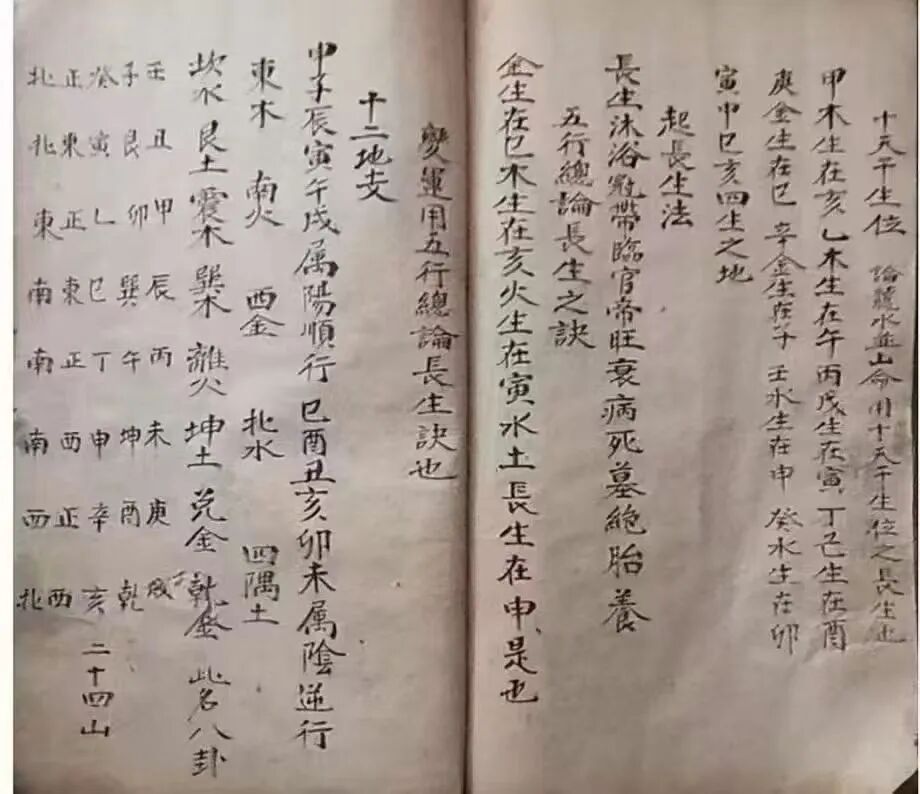 十天干生位 論龍水並山命用十天干生位之長生也
甲木生在亥乙木生在午丙戊生在寅丁己生在酉
庚金生在巳 辛金生在子 壬水生在申 癸水生在卯
寅申巳亥四生之地
起長生法
長生沐浴冠帶臨官帝旺衰病死墓絕胎養
五行總論長生之訣
金生在巳木生在亥火生在寅水土長生在申是也
變運用五行總論長生訣也
十二地支
申子辰寅午戌属陽順行 巳酉丑亥卯未属陰逆行
東木 南火 西金 北水 四隅土
坎水艮土震木巽木離火坤土兌金乾金 此名八卦
壬子癸正北
丑艮寅東北
甲卯乙正東
辰巽巳東南
丙午丁正南
未坤申西南
庚酉辛正西
戌乾亥西北
二十四山